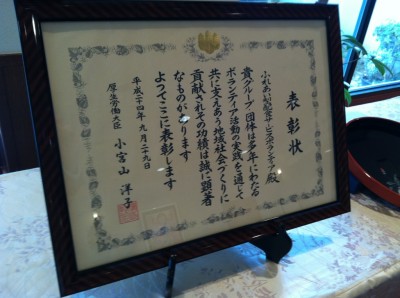 表彰状
ふれあい配食サービスボランティア殿
貴グループ団体は多年にわたる
ボランティア活動の実践を通じて
共に支えあう地域社会づくりに
貢献されその功績は誠に顕著
なものがあります
よつてここに表彰します
平成二十四年九月二十九日
厚生労働大臣 小宮山洋子